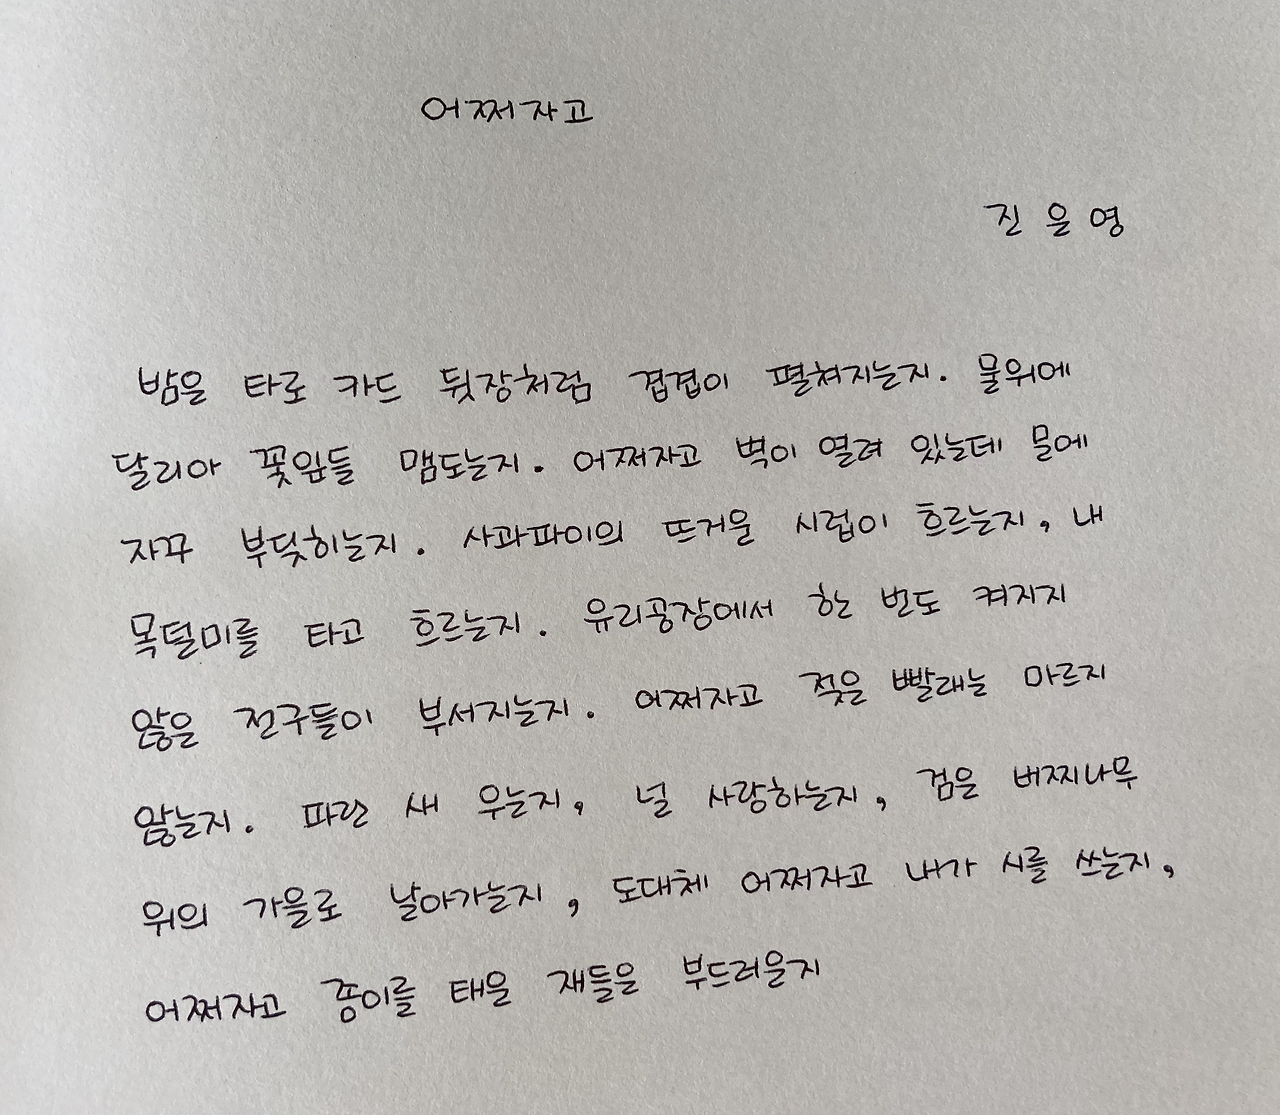 어쩌자고
진 은 영
밤은 타로 카드 뒷장처럼 겹겹이 펼쳐지는지. 물위에
달리아 꽃잎들 맴도는지. 어쩌자고 벽이 열려 있는데 문에
자꾸 부딪히는지. 사과파이의 뜨거운 시럽이 흐르는지, 내
목덜미를 타고 흐르는지. 유리공장에서 한 번도 켜지지
않은 전구들이 부서지는지. 어쩌자고 젖은 빨래는 마르지
않는지. 파란 새 우는지, 널 사랑하는지, 검은 버찌나무
위의 가을로 날아가는지, 도대체 어쩌자고 내가 시를 쓰는지,
어쩌자고 종이를 태운 재들은 부드러운지